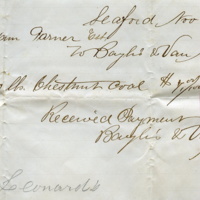 Seaford Nov
Farner Est
To Baylis & Van
lbs. Chestnut Coal
Received Payment
Baylis & V
Leonard's